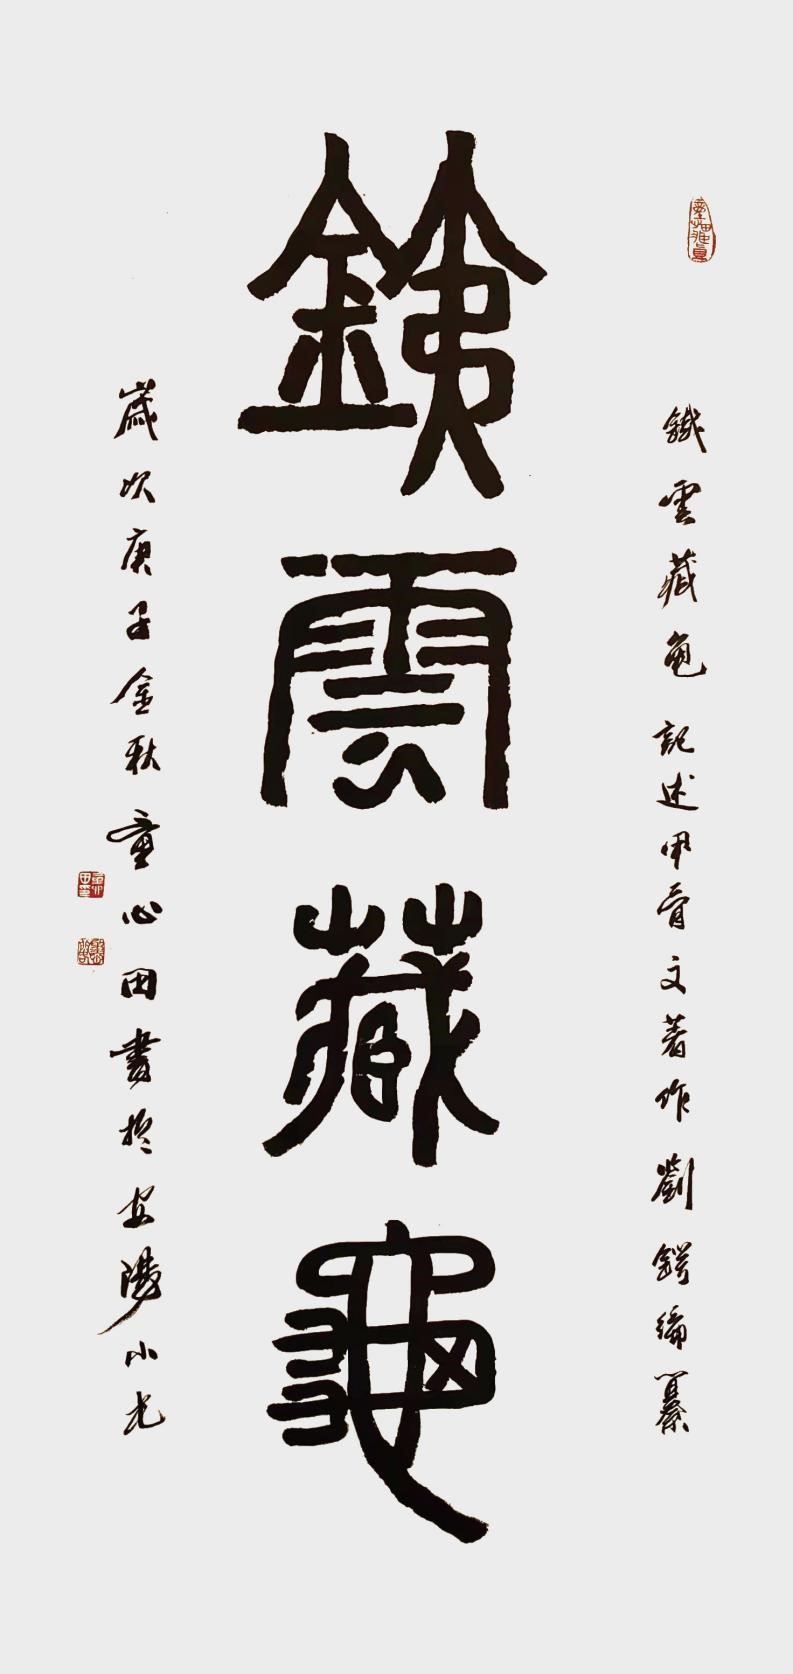 鐵雲藏龜記述甲骨文著作劉鶚編纂
銕雲藏龜
歲次庚子金秋童心田書於安陽小屯